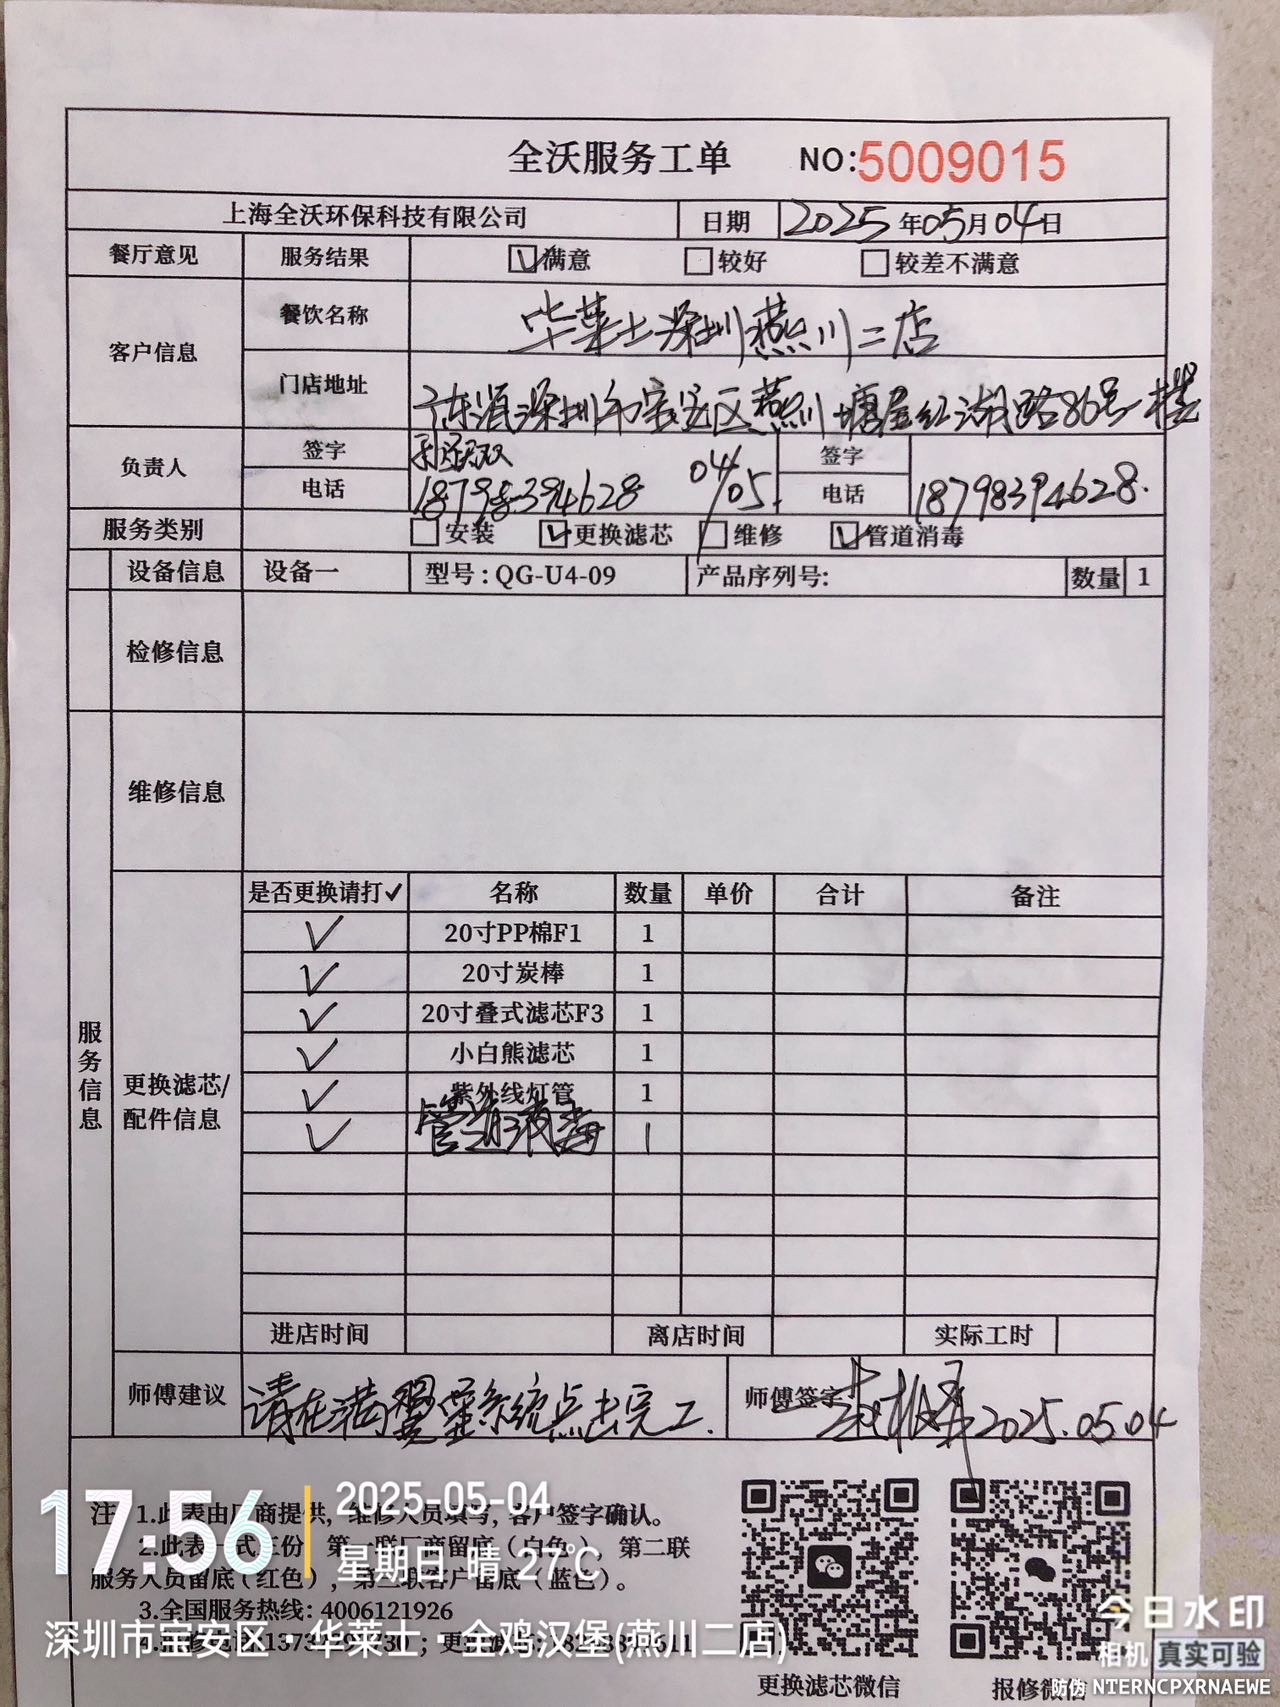 全沃服务工单 NO:5009015
上海全沃环保科技有限公司 日期 2025年05月04日
餐厅意见 服务结果 ☑满意 □较好 □较差不满意
客户信息 餐饮名称 华莱士深圳燕川二店
门店地址 广东省深圳市宝安区燕川塘屋红湖路86号一楼
负责人 签字 04/05 签字
电话 18798394628 电话 18798394628.
服务类别 □安装 ☑更换滤芯 □维修 ☑管道消毒
设备信息 设备一 型号:QG-U4-09 产品序列号: 数量 1
检修信息
维修信息
服务信息 更换滤芯/配件信息
是否更换请打✓ 名称 数量 单价 合计 备注
✓ 20寸PP棉F1 1
✓ 20寸炭棒 1
✓ 20寸叠式滤芯F3 1
✓ 小白熊滤芯 1
✓ 紫外线灯管 1
✓ 管道消毒 1
进店时间 离店时间 实际工时
师傅建议 请在满 系统点击完工. 师傅签字 2025.05.04
注 1.此表由厂商提供,维修人员填写,客户签字确认。
2.此表一式三份 第一联厂商留底(白色),第二联
服务人员留底(红色),第三联客户留底(蓝色)。
3.全国服务热线:4006121926
更换滤芯微信 报修微信
17:56
2025-05-04
星期日 晴 27℃
深圳市宝安区·华莱士·全鸡汉堡(燕川二店)
今日水印
相机 真实可验
防伪 NTERNCPXRNAEWE